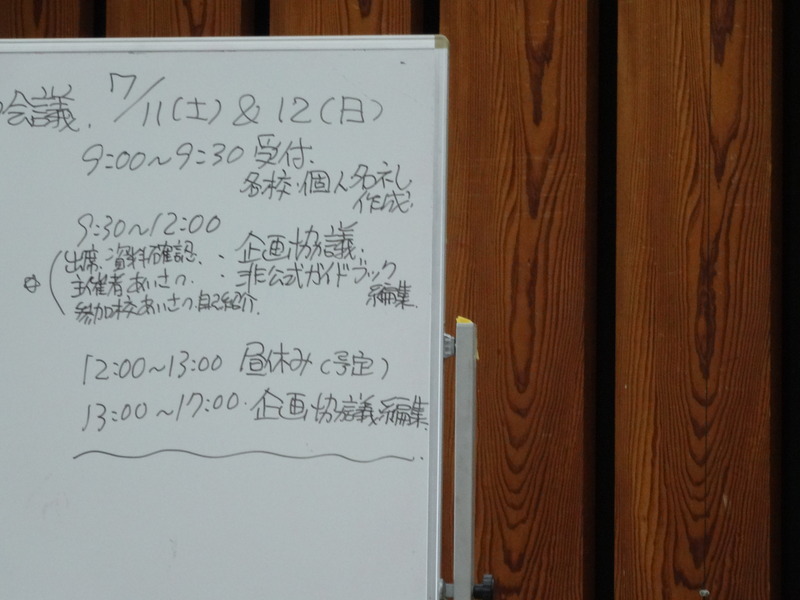 会議. 7/11(土) & 12(日)
9:00〜9:30 受付.
各校・個人名札
作成.
9:30〜12:00
出席・資料確認. ・企画協議.
主催者あいさつ. ・非公式ガイドブック
編集.
参加校あいさつ.自己紹介.
12:00〜13:00 昼休み(予定)
13:00〜17:00. 企画協議編集.